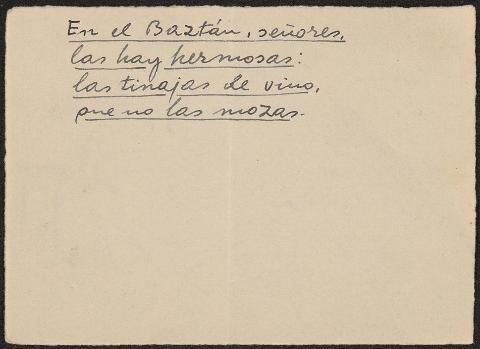 En el Baztán, señores,
las hay hermosas:
las tinajas de vino,
que no las mozas.